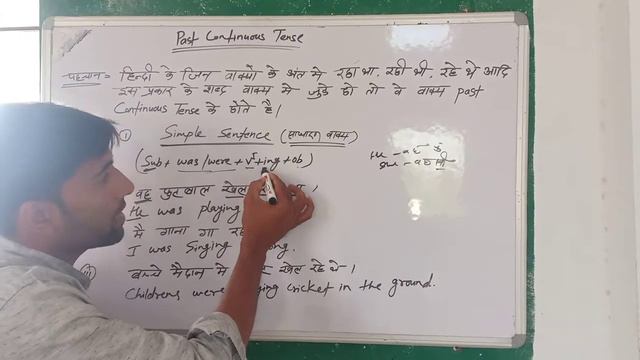 Past Continuous Tense
पहचान = हिन्दी के जिन वाक्यों के अंत में रहा था, रही थी, रहे थे आदि
इस प्रकार के शब्द वाक्य में जुड़े हो तो वे वाक्य past
Continuous Tense के होते है।
① Simple Sentence (साधारण वाक्य)
(Sub + was/were + V¹+ing + ob)
He - वह
She - वह
वह फुटबाल खेल
He was playing
मै गाना गा
I was Singing
बच्चे मैदान मे खेल रहे थे।
Childrens were cricket in the ground.